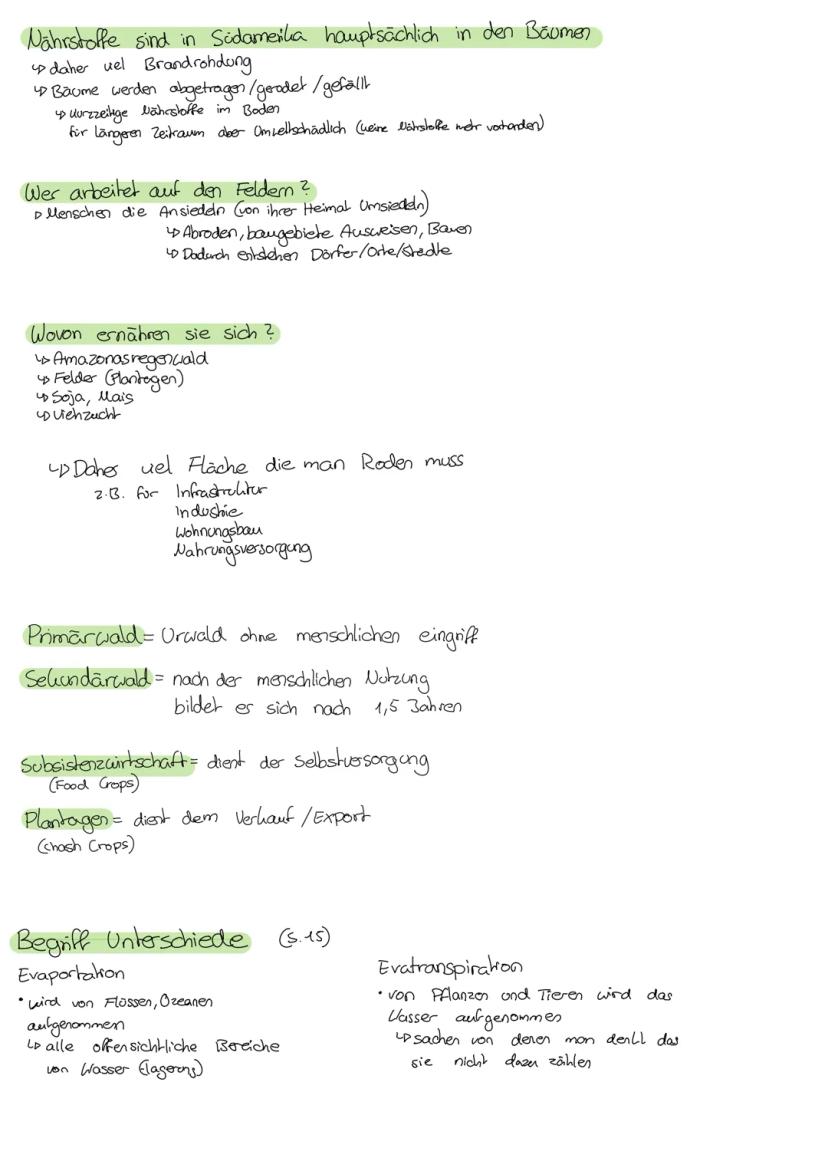 Nährstoffe sind in Südamerika hauptsächlich in den Bäumen
↳ daher viel Brandrohdung
↳ Bäume werden abgetragen/gerodet/gefällt
↳ kurzzeitige Nährstoffe im Boden
für längeren Zeitraum aber Umweltschädlich (keine Nährstoffe mehr vorhanden)
Wer arbeitet auf den Feldern?
▷ Menschen die Ansiedeln (von ihrer Heimat Umsiedeln)
↳ Abroden, baugebiete Ausweisen, Bauen
↳ Dadurch entstehen Dörfer/Orte/Städte
Wovon ernähren sie sich?
↳ Amazonasregenwald
↳ Felder (Plantagen)
↳ Soja, Mais
↳ Viehzucht
↳ Daher viel Fläche die man Roden muss
z.B. für Infrastruktur
Industrie
Wohnungsbau
Nahrungsversorgung
Primärwald = Urwald ohne menschlichen eingriff
Sekundärwald = nach der menschlichen Nutzung
bildet er sich nach 1,5 Jahren
Subsistenzwirtschaft = dient der Selbstversorgung
(Food Crops)
Plantagen = dient dem Verkauf/Export
(Chash Crops)
Begriff Unterschiede (S.15)
Evaportation
• wird von Flüssen, Ozeanen
aufgenommen
↳ alle offensichtliche Bereiche
von Wasser
Evatranspiration
• von Pflanzen und Tieren wird das
Wasser aufgenommen
↳ sachen von denen man denkt das
sie nicht dazu zählen